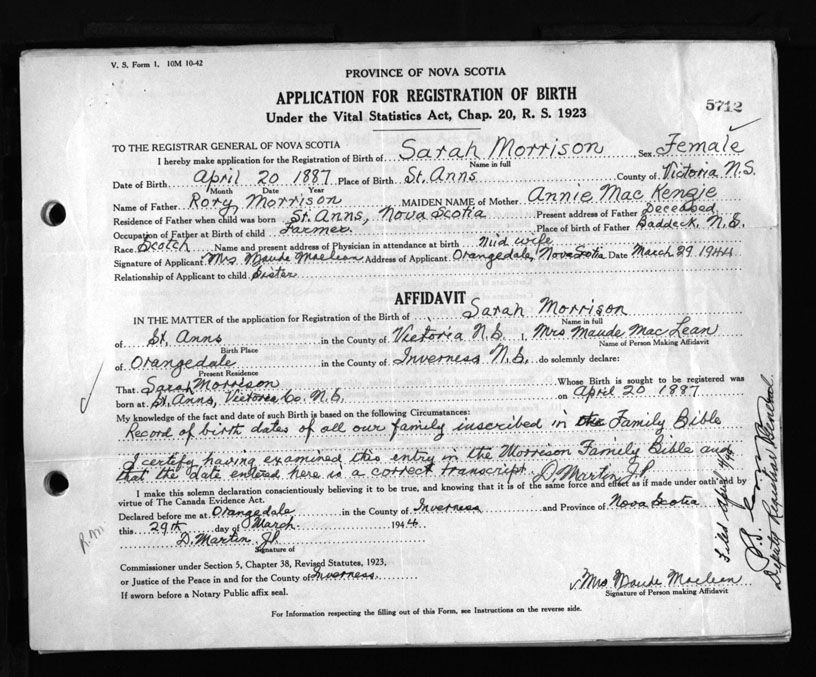 V. S. Form 1. 10M 10-42
PROVINCE OF NOVA SCOTIA
APPLICATION FOR REGISTRATION OF BIRTH
5712
Under the Vital Statistics Act, Chap. 20, R. S. 1923
TO THE REGISTRAR GENERAL OF NOVA SCOTIA
I hereby make application for the Registration of Birth of Sarah Morrison Sex Female
Name in full
Date of Birth April 20 1887 Place of Birth St. Anns County of Victoria N.S.
Month Date Year
Name of Father Rory Morrison MAIDEN NAME of Mother Annie Mac Kenzie
Residence of Father when child was born St. Anns, Nova Scotia Present address of Father Deceased
Occupation of Father at Birth of child Farmer Place of birth of Father Baddeck, N.S.
Race Scotch Name and present address of Physician in attendance at birth Mid wife
Signature of Applicant Mrs. Maude Maclean Address of Applicant Orangedale, Nova Scotia Date March 29 1944
Relationship of Applicant to child Sister
AFFIDAVIT
IN THE MATTER of the application for Registration of the Birth of Sarah Morrison
Name in full
of St. Anns in the County of Victoria N.S. I, Mrs Maude Mac Lean
Birth Place Name of Person Making Affidavit
of Orangedale in the County of Inverness N.S. do solemnly declare:
Present Residence
That Sarah Morrison Whose Birth is sought to be registered was
born at St. Anns, Victoria Co. N.S. on April 20 1887
My knowledge of the fact and date of such Birth is based on the following Circumstances:
Record of birth dates of all our family inscribed in the Family Bible
I certify having examined this entry in the Morrison Family Bible and
that the date entered here is a correct transcript. D. Martin J.P.
I make this solemn declaration conscientiously believing it to be true, and knowing that it is of the same force and effect as if made under oath and by
virtue of The Canada Evidence Act.
Declared before me at Orangedale in the County of Inverness and Province of Nova Scotia
this 29th day of March 1944
D. Martin J.P.
Signature of
Commissioner under Section 5, Chapter 38, Revised Statutes, 1923,
or Justice of the Peace in and for the County of Inverness
If sworn before a Notary Public affix seal.
Mrs Maude Maclean
Signature of Person making Affidavit
For Information respecting the filling out of this Form, see Instructions on the reverse side.
Filed April
Deputy Registrar General